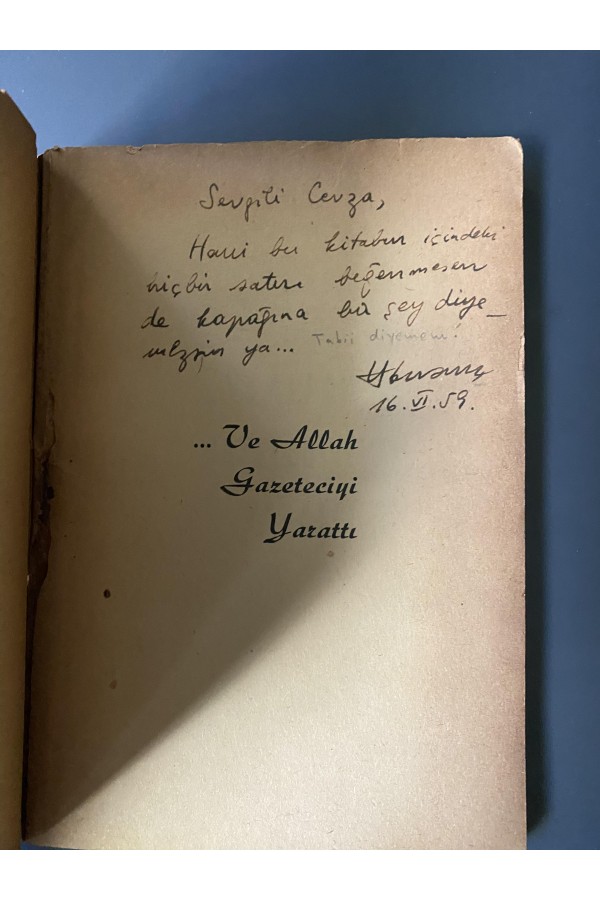 Sevgili Cevza,
Hani bu kitabın içindeki
hiçbir satırı beğenmesen
de kapağına bir şey diye_
mezsin ya... Tabii diyemem!
16.VI.59.
... Ve Allah
Gazeteciyi
Yarattı